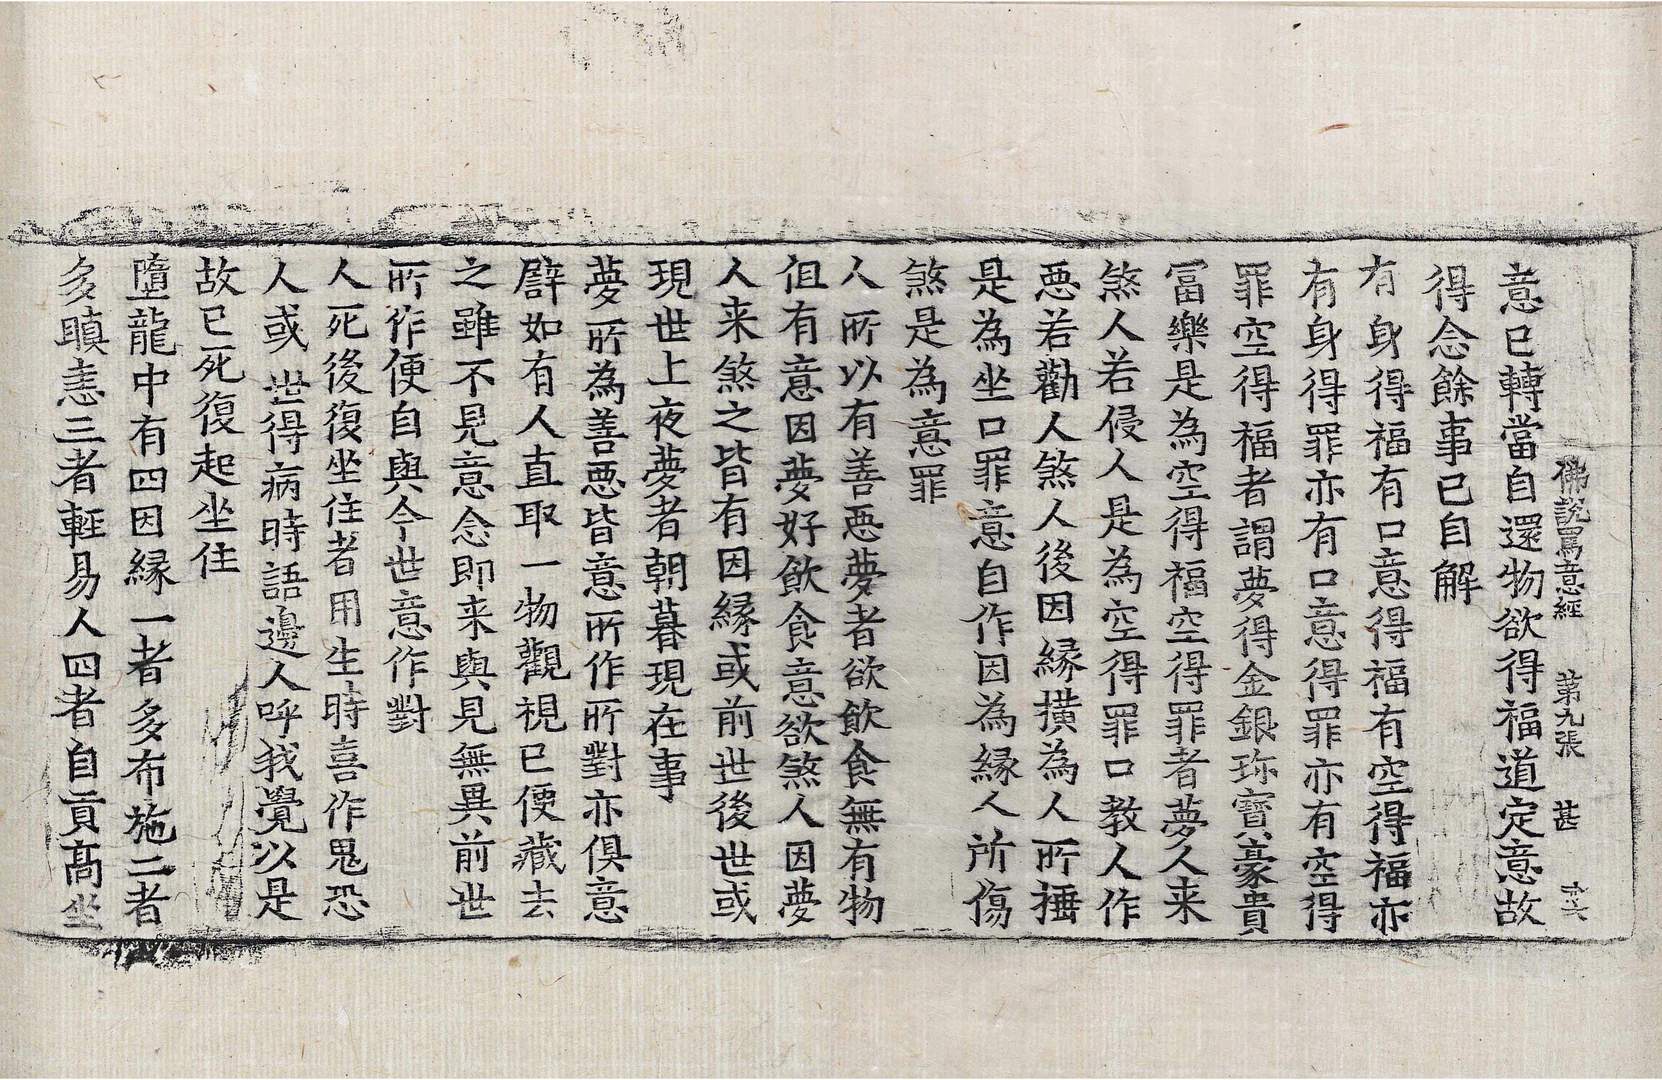 佛説罵意經　第九張　甚
意已轉當自還物欲得福道定意故
得念餘事已自解
有身得福有口意得福有空得福亦
有身得罪亦有口意得罪亦有空得
罪空得福者謂夢得金銀珎寶豪貴
冨樂是為空得福空得罪者夢人来
煞人若侵人是為空得罪口教人作
惡若勸人煞人後因縁横為人所捶
是為坐口罪意自作因為縁人所傷
煞是為意罪
人所以有善惡夢者欲飲食無有物
但有意因夢好飲食意欲煞人因夢
人来煞之皆有因縁或前世後世或
現世上夜夢者朝暮現在事
夢所為善惡皆意所作所對亦俱意
譬如有人直取一物觀視已便藏去
之雖不見意念即来與見無異前世
所作便自與今世意作對
人死後復坐住者用生時喜作鬼恐
人或世得病時語邊人呼我覺以是
故已死復起坐住
墮龍中有四因縁一者多布施二者
多瞋恚三者輕易人四者自貢髙坐